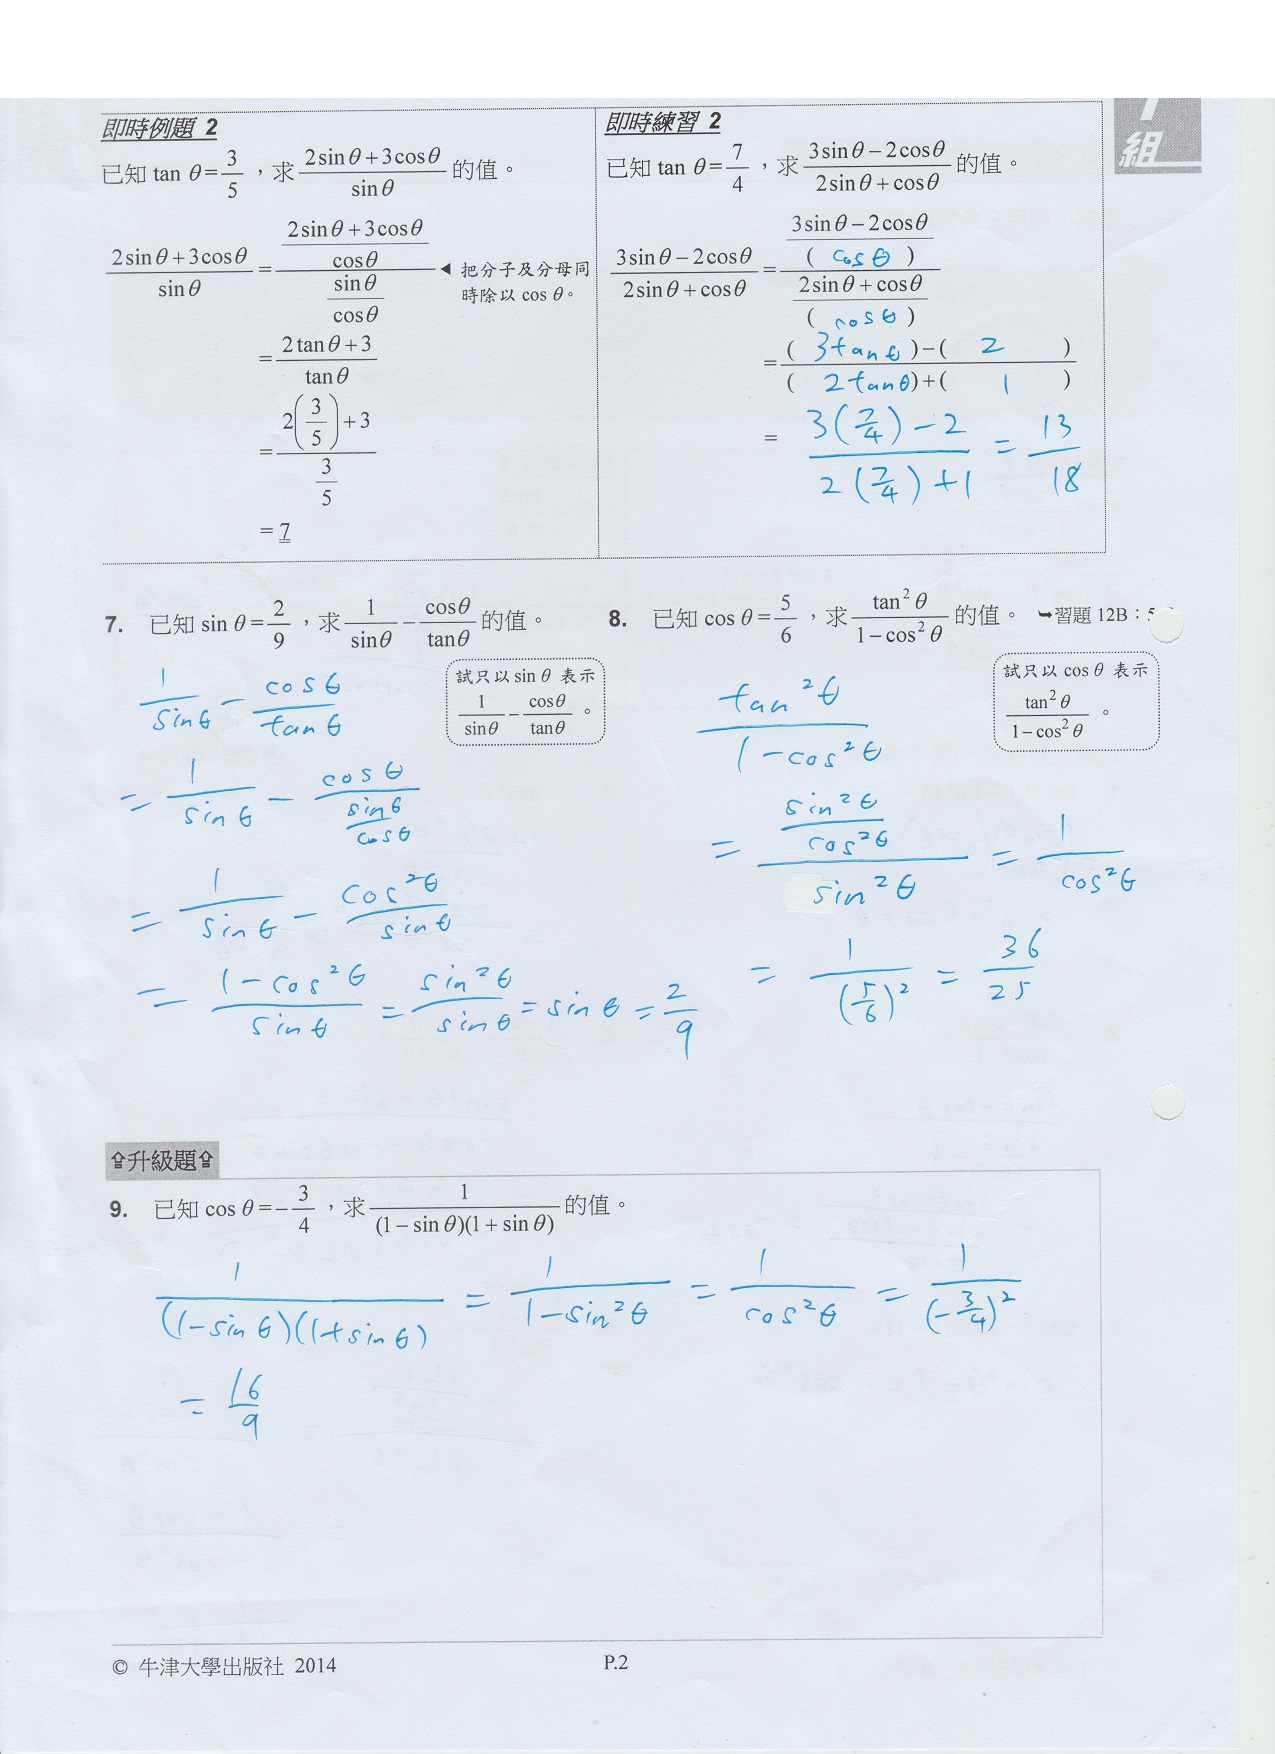 組
即時例題 2
已知 tan θ = 3/5 ，求 (2sinθ + 3cosθ)/sinθ 的值。
(2sinθ + 3cosθ)/sinθ = ((2sinθ + 3cosθ)/cosθ)/(sinθ/cosθ) ◄ 把分子及分母同時除以 cos θ。
= (2tanθ + 3)/tanθ
= (2(3/5) + 3)/(3/5)
= 7
即時練習 2
已知 tan θ = 7/4 ，求 (3sinθ − 2cosθ)/(2sinθ + cosθ) 的值。
(3sinθ − 2cosθ)/(2sinθ + cosθ) = ((3sinθ − 2cosθ)/( cosθ ))/((2sinθ + cosθ)/( cosθ ))
= (( 3tanθ ) − ( 2 ))/(( 2tanθ ) + ( 1 ))
= (3(7/4) − 2)/(2(7/4) + 1) = 13/18
7. 已知 sin θ = 2/9 ，求 1/sinθ − cosθ/tanθ 的值。
試只以 sin θ 表示
1/sinθ − cosθ/tanθ 。
1/sinθ − cosθ/tanθ
= 1/sinθ − cosθ/(sinθ/cosθ)
= 1/sinθ − cos²θ/sinθ
= (1 − cos²θ)/sinθ = sin²θ/sinθ = sinθ = 2/9
8. 已知 cos θ = 5/6 ，求 tan²θ/(1 − cos²θ) 的值。 ➥習題 12B：
試只以 cos θ 表示
tan²θ/(1 − cos²θ) 。
tan²θ/(1 − cos²θ)
= (sin²θ/cos²θ)/sin²θ = 1/cos²θ
= 1/(5/6)² = 36/25
⇧升級題⇧
9. 已知 cos θ = −3/4 ，求 1/((1 − sin θ)(1 + sin θ)) 的值。
1/((1 − sinθ)(1 + sinθ)) = 1/(1 − sin²θ) = 1/cos²θ = 1/(−3/4)²
= 16/9
© 牛津大學出版社 2014
P.2